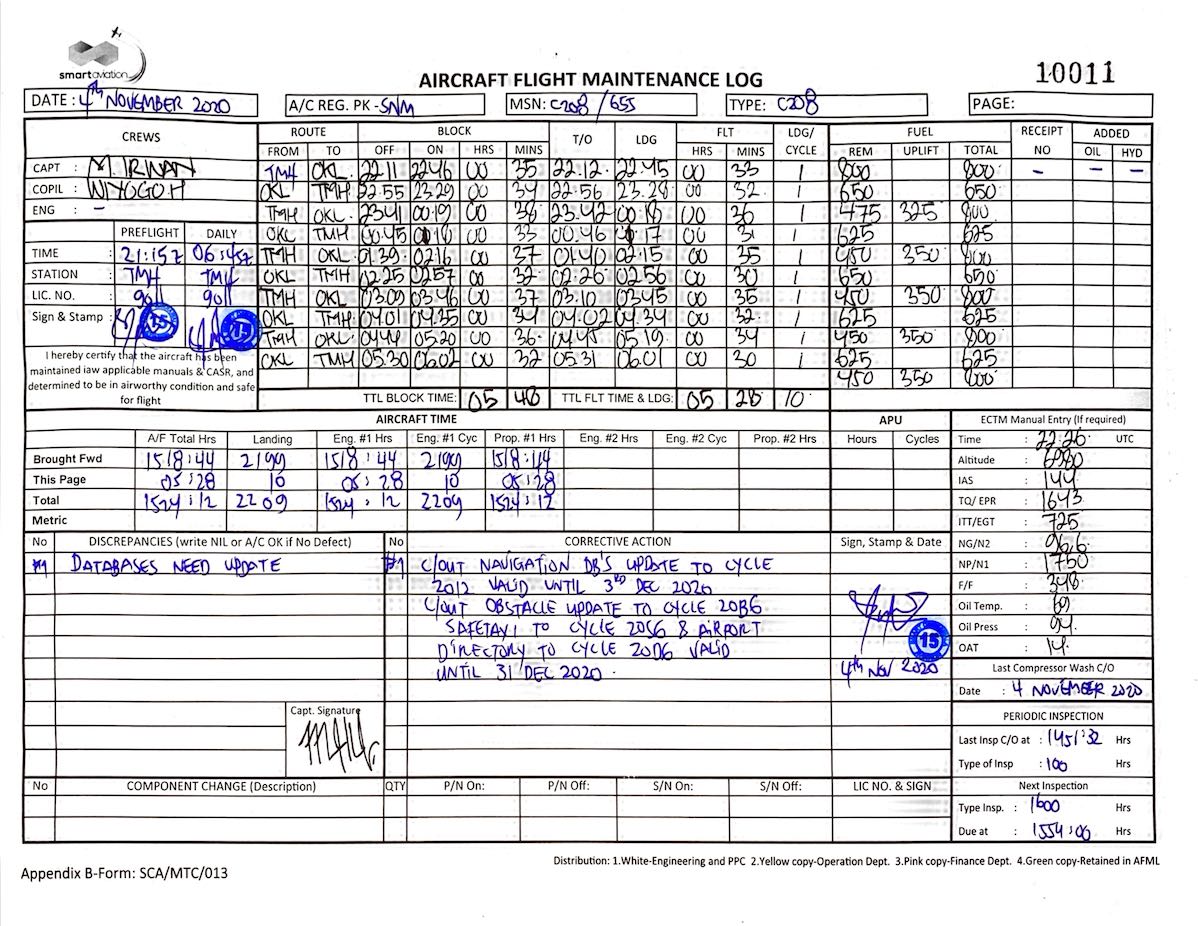 smartaviation
AIRCRAFT FLIGHT MAINTENANCE LOG
10011
DATE : 4th NOVEMBER 2020
A/C REG. PK - SNM
MSN: C208 / 655
TYPE: C208
PAGE:
CREWS
ROUTE BLOCK T/O LDG FLT LDG/ CYCLE FUEL RECEIPT NO ADDED
FROM TO OFF ON HRS MINS HRS MINS REM UPLIFT TOTAL OIL HYD
CAPT : M. IRWAN
COPIL : WIYOGO H
ENG : -
TMH OKL 22.11 22.46 00 35 22.12. 22.45 00 33 1 800 800 - - -
OKL TMH 22.55 23.29 00 34 22.56 23.28 00 32 1 650 650
TMH OKL 23.41 00.19 00 38 23.42 00.18 00 36 1 475 325 800
OKL TMH 00.45 00 33 00.46 17 00 31 1 625 625
TMH OKL 01.39. 02.16 00 37 01.40 02.15 00 35 1 450 350 800
OKL TMH 02.25 02.57 00 32 02.26 02.56 00 30 1 650 650
TMH OKL 03.09 03.46 00 37 03.10 03.45 00 35 1 450 350 800
OKL TMH 04.01 04.35 00 34 04.02 04.34 00 32 1 625 625
TMH OKL 04.44 05.20 00 36 04.45 05.19 00 34 1 450 350 800
OKL TMH 05.30 06.02 00 32 05.31 06.01 00 30 1 625 625
450 350 800
PREFLIGHT DAILY
TIME : 21:15Z 06:45Z
STATION : TMH TMH
LIC. NO. : 9011 9011
Sign & Stamp : 15 15
I hereby certify that the aircraft has been
maintained iaw applicable manuals & CASR, and
determined to be in airworthy condition and safe
for flight
TTL BLOCK TIME: 05 48 TTL FLT TIME & LDG: 05 28 10
AIRCRAFT TIME
APU
A/F Total Hrs Landing Eng. #1 Hrs Eng. #1 Cyc Prop. #1 Hrs Eng. #2 Hrs Eng. #2 Cyc Prop. #2 Hrs Hours Cycles
Brought Fwd 1518:44 2199 1518:44 2199 1518:44
This Page 05:28 10 05:28 10 05:28
Total 1524:12 2209 1524:12 2209 1524:12
Metric
ECTM Manual Entry (If required)
Time : 22.26 UTC
Altitude : 6980
IAS : 144
TQ/ EPR : 1643
ITT/EGT : 725
NG/N2 : 96.6
NP/N1 : 1750
F/F : 348
Oil Temp. : 69
Oil Press : 94.
OAT : 14.
Last Compressor Wash C/O
Date : 4 NOVEMBER 2020
PERIODIC INSPECTION
Last Insp C/O at : 1451:32 Hrs
Type of Insp : 100 Hrs
Next Inspection
Type Insp. : 1600 Hrs
Due at : 1554:06 Hrs
No DISCREPANCIES (write NIL or A/C OK if No Defect) No CORRECTIVE ACTION Sign, Stamp & Date
#1 DATABASES NEED UPDATE #1 C/OUT NAVIGATION DB'S UPDATE TO CYCLE
2012 VALID UNTIL 3RD DEC 2020
C/OUT OBSTACLE UPDATE TO CYCLE 20B6
SAFETAXI TO CYCLE 20S6 & AIRPORT
DIRECTORY TO CYCLE 20D6 VALID
UNTIL 31 DEC 2020 .
15
4th NOV 2020
Capt. Signature
No COMPONENT CHANGE (Description) QTY P/N On: P/N Off: S/N On: S/N Off: LIC NO. & SIGN
Distribution: 1.White-Engineering and PPC 2.Yellow copy-Operation Dept. 3.Pink copy-Finance Dept. 4.Green copy-Retained in AFML
Appendix B-Form: SCA/MTC/013